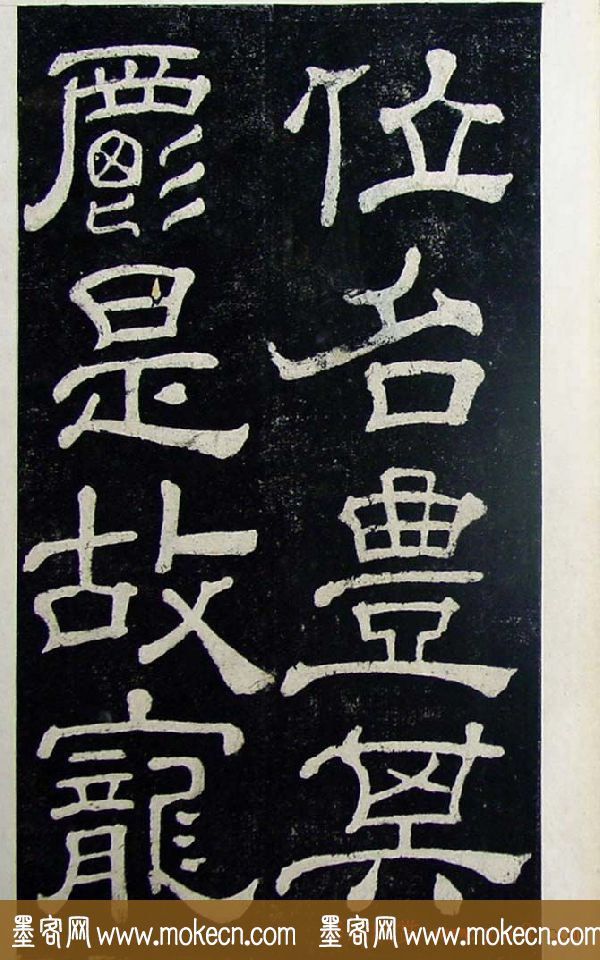 位名豊其
爵是故寵
墨客网www.mokecn.com 墨客网www.mokecn.com